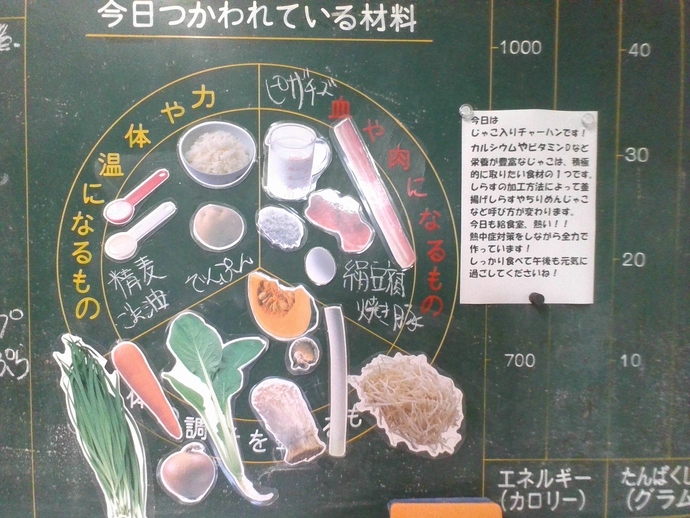 今日つかわれている材料
1000
40
30
20
700
10
エネルギー
(カロリー)
たんぱくし
(グラム
体や力
温になるもの
血や肉になるもの
ピザチーズ
精麦
ごま油
でんぷん
絹豆腐
焼き豚
体
の調
を
るも
今日は
じゃこ入りチャーハンです!
カルシウムやビタミンDなど
栄養が豊富なじゃこは、積極
的に取りたい食材の1つです。
しらすの加工方法によって釜
揚げしらすやちりめんじゃこ
など呼び方が変わります。
今日も給食室、熱い!!
熱中症対策をしながら全力で
作っています!
しっかり食べて午後も元気に
過ごしてくださいね!